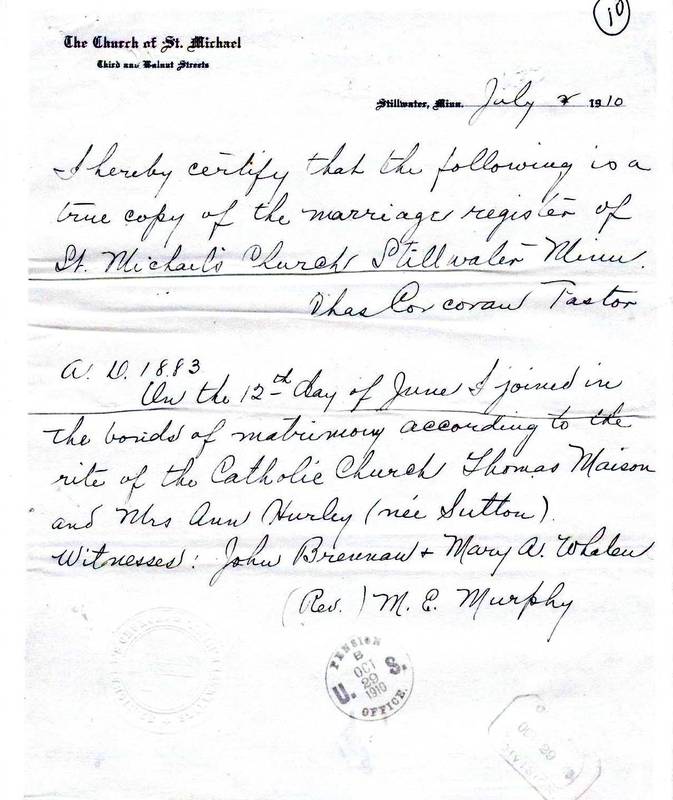 10
The Church of St. Michael
Third and Walnut Streets
Stillwater, Minn. July 2 1910
I hereby certify that the following is a
true copy of the marriage register of
St. Michael's Church Stillwater Minn.
Chas Corcoran Pastor
A. D. 1883
On the 12th day of June I joined in
the bonds of matrimony according to the
rite of the Catholic Church Thomas Maison
and Mrs Ann Hurley (née Sutton).
Witnesses: John Brennan + Mary A. Whalen
(Rev.) M. E. Murphy
PENSION
B
OCT
29
1910
U. S.
OFFICE.
OCT 29